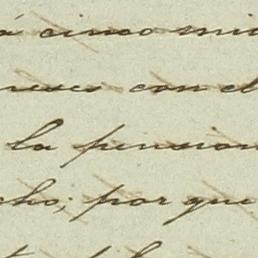 á cinco mi
reses con el
la pension
cho; por que